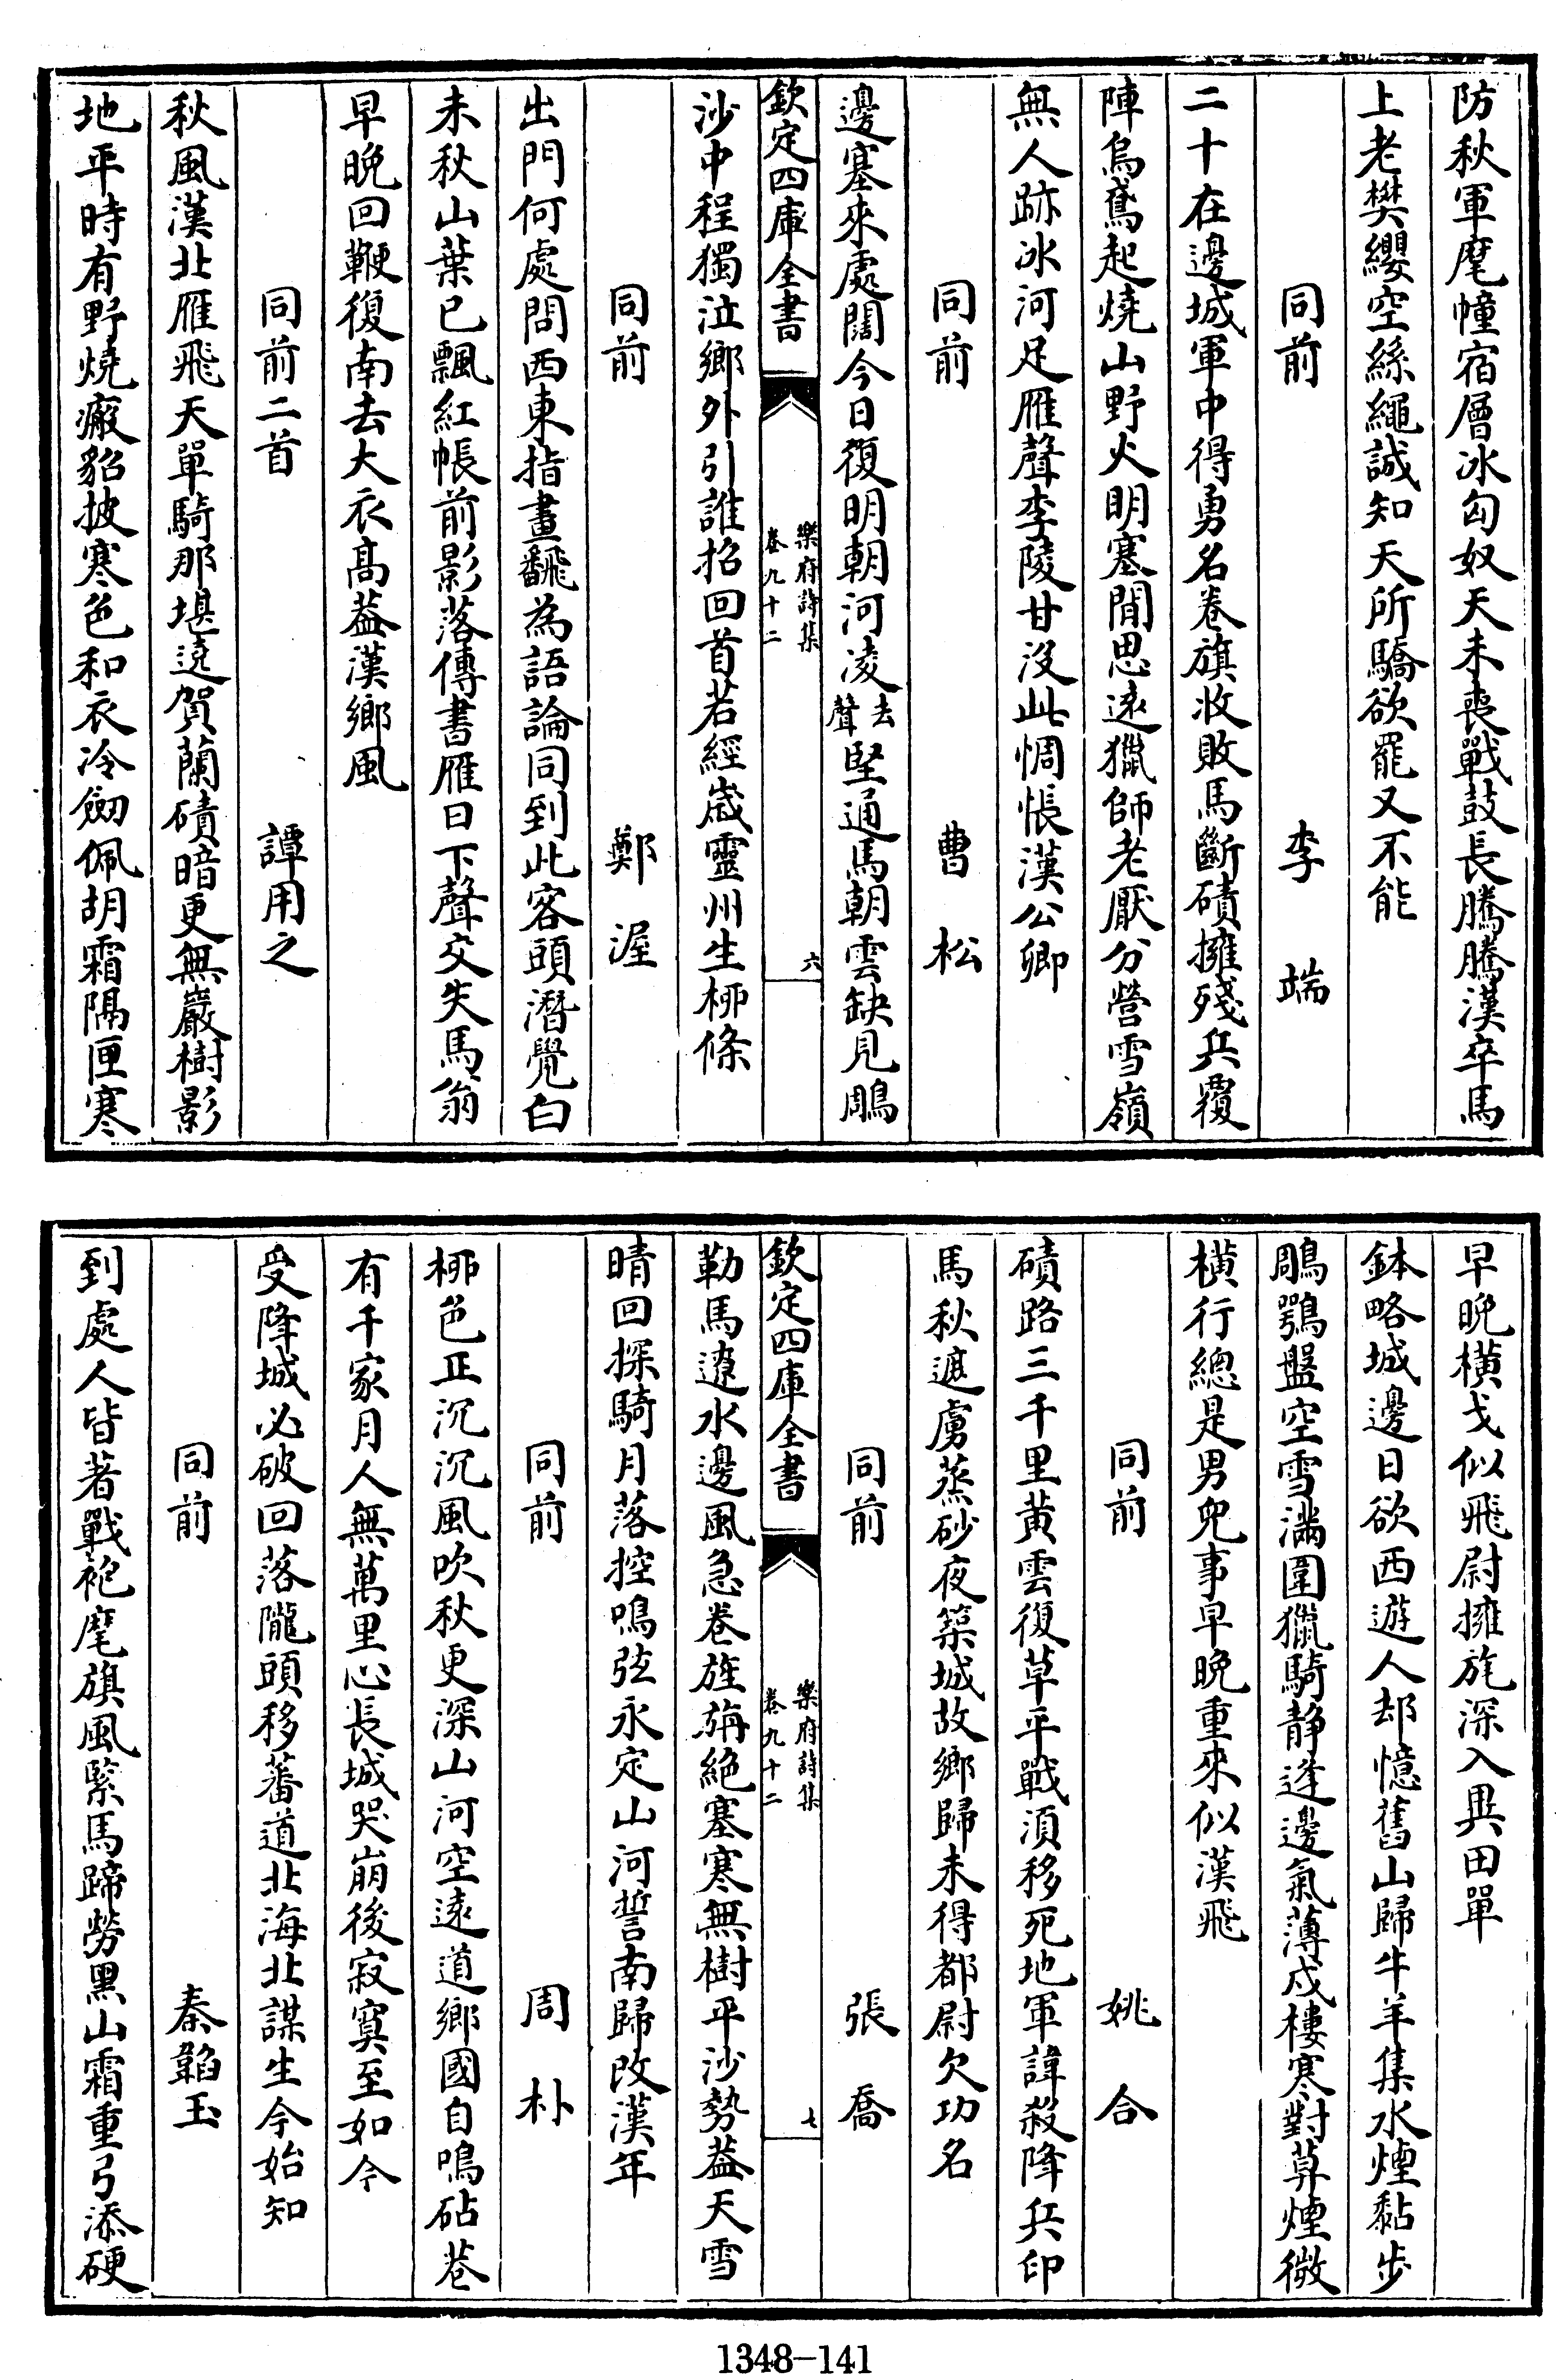 防秋軍麾幢宿層冰匈奴天未喪戰鼓長騰騰漢卒馬
上老樊纓空絲繩誠知天所驕欲罷又不能
同前　李端
二十在邊城軍中得勇名卷旗收敗馬斷磧擁殘兵覆
陣烏鳶起燒山野火明塞閒思遠獵師老厭分營雪嶺
無人跡冰河足雁聲李陵甘沒此惆悵漢公卿
同前　曹松
邊塞來處闊今日復明朝河凌去聲堅通馬朝雲缺見鵰
欽定四庫全書　樂府詩集 卷九十二　六
沙中程獨泣鄉外引誰招回首若經歲靈州生柳條
同前　鄭渥
出門何處問西東指畫飜為語論同到此客頭潛覺白
未秋山葉已飄紅帳前影落傳書雁日下聲交失馬翁
早晚回鞭復南去大衣高蓋漢鄉風
同前二首　譚用之
秋風漢北雁飛天單騎那堪遶賀蘭磧暗更無巖樹影
地平時有野燒瘢貂披寒色和衣冷劒佩胡霜隔匣寒
早晚橫戈似飛尉擁旄深入異田單
鉢略城邊日欲西遊人却憶舊山歸牛羊集水煙黏步
鵰鶚盤空雪滿圍獵騎静逢邊氣薄戍樓寒對暮煙微
橫行總是男兒事早晚重來似漢飛
同前　姚合
磧路三千里黄雲復草平戰須移死地軍諱殺降兵印
馬秋遮虜蒸砂夜築城故鄉歸未得都尉欠功名
同前　張喬
欽定四庫全書　樂府詩集 卷九十二　七
勒馬遼水邊風急卷旌旃絶塞寒無樹平沙勢蓋天雪
晴回探騎月落控鳴弦永定山河誓南歸改漢年
同前　周朴
柳色正沉沉風吹秋更深山河空遠道鄉國自鳴砧巷
有千家月人無萬里心長城哭崩後寂寞至如今
受降城必破回落隴頭移蕃道北海北謀生今始知
同前　秦韜玉
到處人皆著戰袍麾旗風緊馬蹄勞黑山霜重弓添硬
1348-141